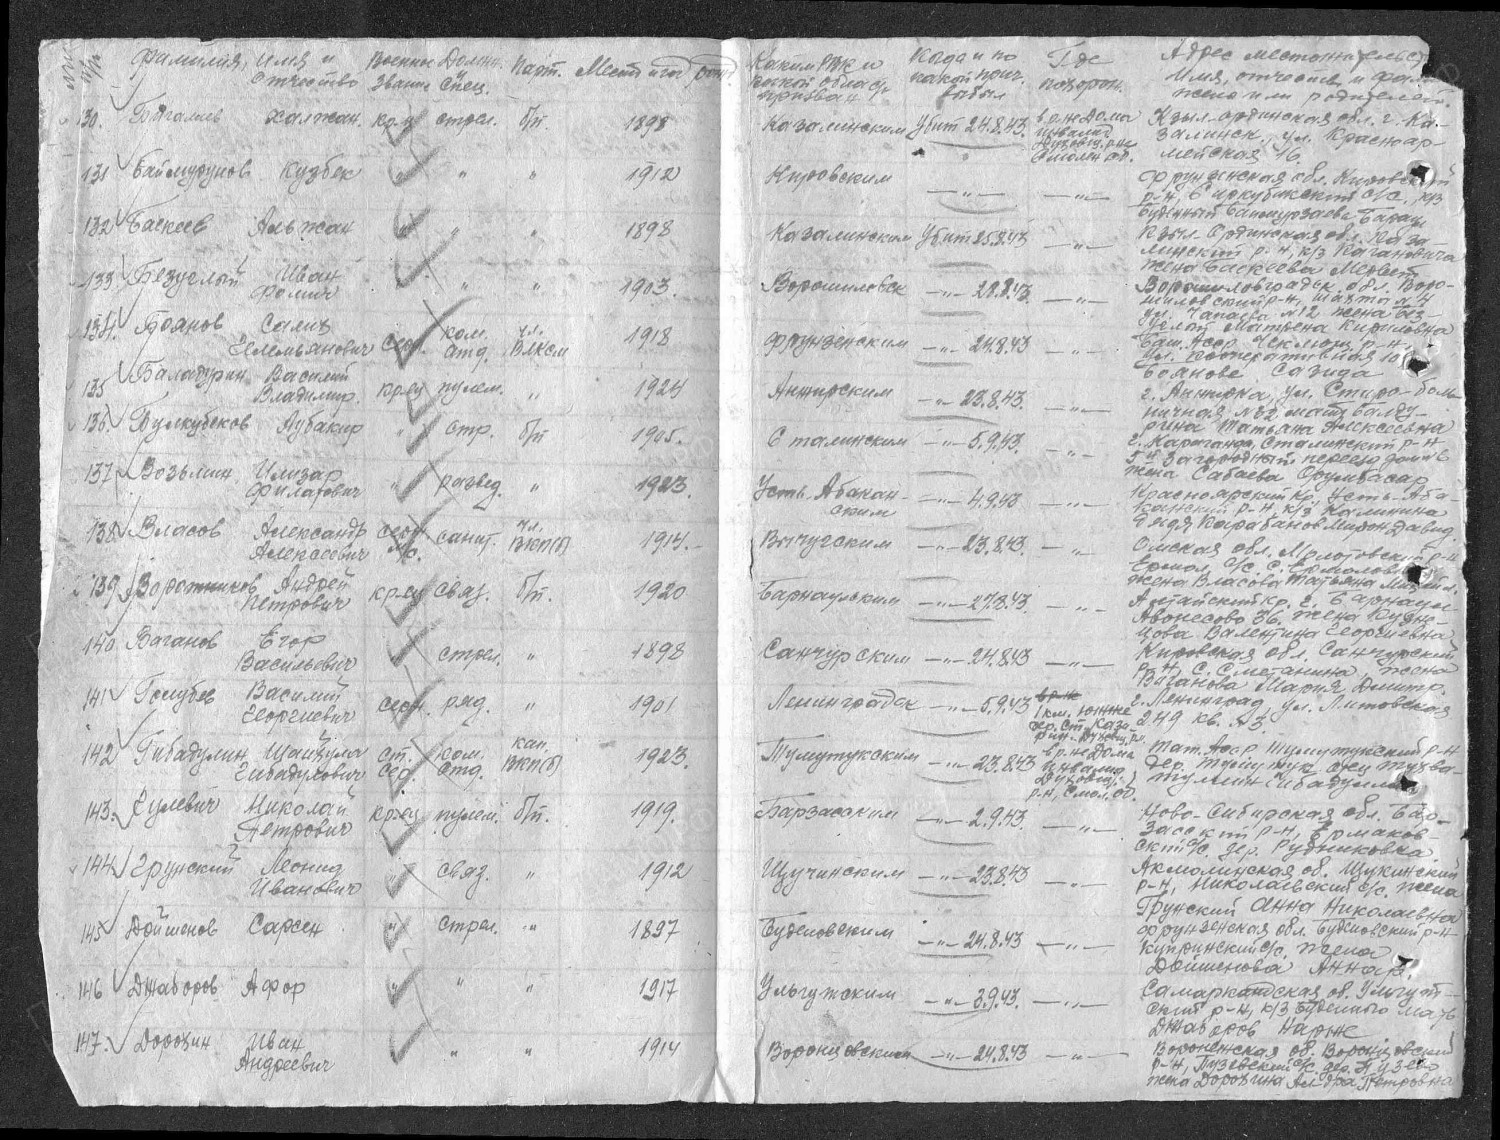 Фамилия, Имя и Отчество Военное Звание Должн. Спец. Парт. Каким РВК и какой области призван Когда и по какой прич. выбыл Где похорон. Адрес местожительст. Имя, отчество, и фам. жены или родителей.
130. хамжан. кр-ц стрел. б/п. 1898 Казалинским Убит 24.8.43. в р-не Дома инвалид Духовщ. р-на Смолен. об. Кзыл-ординская обл. г. Ка-
залинск, ул. Красноар-
мейская 16.
131 Баймурунов Кузбек " " " 1912 Кировским —"— —"— Фрунзенская обл. Кировский
р-н, с/с, к/з
Буденный
132 Баскеев Альжан " " " 1898 Казалинским Убит 25.8.43 —"— Кзыл Ординская обл. Каза-
линский р-н, к/з Кагановича
жена Баскеева
133 Безуглый Иван Фомич " " " 1903. Ворошиловск —"— 28.8.43 —"— Ворошиловградск. обл. Воро-
шиловский р-н, шахта №4
ул. Чапаева №12 жена Без-
углая Матрена Кириловна
134. Боянов Салих серж. ком. отд. чл. ВЛКСМ 1918 Фрунзенским —"— 24.8.43 —"— Баш. Асср р-н,
ул. Кооперативная 10
Боянове Сагида
135 Баладурин Василий Владимир. кр-ец пулем. " 1924 Анжерским —"— 23.8.43. —"— г. Анжерка, ул. Старо-боль-
ничная №82 мать Балду-
рина Татьяна Алексеевна
136 Булкубеков Аубакир " стр. б/п 1905. Сталинским —"— 5.9.43. —"— г. Караганда, Сталинский р-н
Загородный переезд дом 6
жена Сабаева
137 Возьмин Филатович " развед. " 1923. Усть-Абакан-
ским —"— 4.9.43 —"— Красноярский кр. Усть-Аба-
канский р-н, к/з Калинина
дядя Карабанов Мирон Давид.
138 Власов Александр Алексеевич серж. санит. чл. ВКП(б) 1914. Вичугским —"— 23.8.43. —"— Омская обл. Молотовский р-н
с/с с.
жена Власова Татьяна
139 Андрей Петрович кр-ец связ. б/п. 1920 Барнаульским —"— 27.8.43. —"— Алтайский кр. г. Барнаул
36. жена Кузне-
цова Валентина Георгиевна
140 Ваганов Егор Васильевич " стрел. " 1898 Санчурским —"— 24.8.43 —"— Кировская обл. Санчурский
р-н, с. Сметанина жена
Ваганова Мария Дмитр.
141 Голубев Василий Георгиевич серж. ряд. " 1901 Ленинградск —"— 5.9.43 1 км. южнее дер. Ст. Каза-
г. Ленинград, ул. Литовская
249 кв. 13.
142 Гибадулин ст. сер. ком. отд. кан. ВКП(б) 1923. Тумутукским —"— 23.8.43 в р-не Дома инвалид Духовщ. р-н, Смол. об. Тат. Асср Тумутукский р-н
дер. Тумутук отец
Гибадулин
143. Гулевич Николай Петрович кр-ец пулем. б/п. 1919. Барзасским —"— 2.9.43. —"— Ново-Сибирская обл. Бар-
засский р-н, Ермаков-
ский с/с. дер. Рудниковка
144 Грунский Леонид Иванович " связ. " 1912 Щучинским —"— 23.8.43 —"— Акмолинская об. Щукинский
р-н, Николаевский с/с. жена
Грунский Анна Николаевна
145 Дойшенов Сарсен " стрел. " 1897 Буденовским —"— 24.8.43 —"— Фрунзенская обл. Буденовский р-н
Купринский с/с. жена
Дойшенова
146 Джаборов Афор " " " 1917 Ульгутским —"— 3.9.43. —"— Самаркандская об. Ульгут-
ский р-н, к/з Буденного мать
Джаборов
147. Дорохин Иван Андреевич " " " 1914 Воронцовским —"— 24.8.43 —"— Воронежская об. Воронцовский
р-н, Пузевский с/с. дер. Пузево
жена Дорохина Ал-дра Петровна